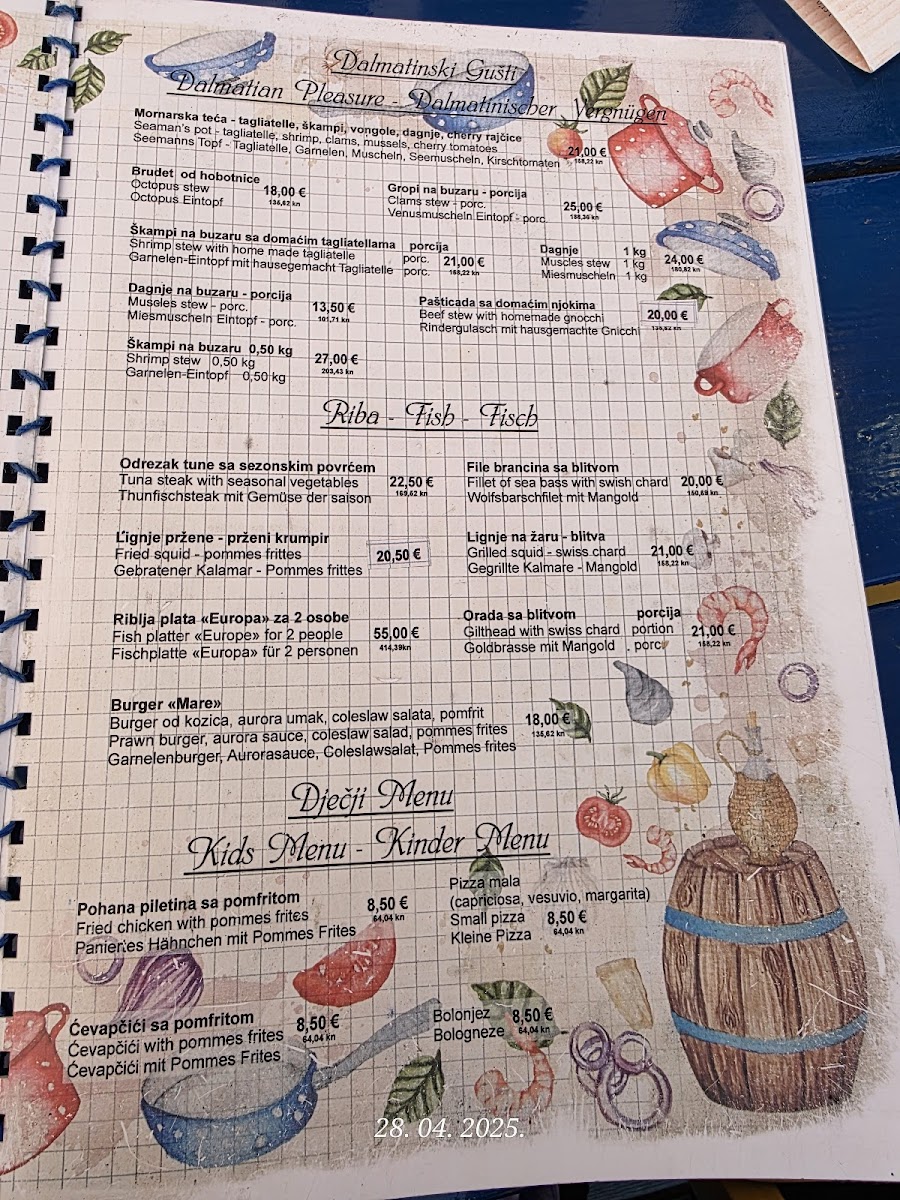 Dalmatinski Gušti
Dalmatian Pleasure - Dalmatinischer Vergnügen
Mornarska teća - tagliatelle, škampi, vongole, dagnje, cherry rajčice
Seaman's pot - tagliatelle, shrimp, clams, mussels, cherry tomatoes
Seemanns Topf - Tagliatelle, Garnelen, Muscheln, Seemuscheln, Kirschtomaten
21,00 €
158,22 kn
Brudet od hobotnice
Octopus stew
Octopus Eintopf
18,00 €
135,62 kn
Gropi na buzaru - porcija
Clams stew - porc.
Venusmuscheln Eintopf - porc.
25,00 €
188,36 kn
Škampi na buzaru sa domaćim tagliatellama porcija
Shrimp stew with home made tagliatelle porc.
Garnelen-Eintopf mit hausegemacht Tagliatelle porc.
21,00 €
158,22 kn
Dagnje 1 kg
Muscles stew 1 kg
Miesmuscheln 1 kg
24,00 €
180,82 kn
Dagnje na buzaru - porcija
Museles stew - porc.
Miesmuscheln Eintopf - porc.
13,50 €
101,71 kn
Pašticada sa domaćim njokima
Beef stew with homemade gnocchi
Rindergulasch mit hausgemachte Gnicchi
20,00 €
Škampi na buzaru 0,50 kg
Shrimp stew 0,50 kg
Garnelen-Eintopf 0,50 kg
27,00 €
203,43 kn
Riba - Fish - Fisch
Odrezak tune sa sezonskim povrćem
Tuna steak with seasonal vegetables
Thunfischsteak mit Gemüse der saison
22,50 €
169,52 kn
File brancina sa blitvom
Fillet of sea bass with swish chard
Wolfsbarschfilet mit Mangold
20,00 €
150,69 kn
Lignje pržene - prženi krumpir
Fried squid - pommes frittes
Gebratener Kalamar - Pommes frittes
20,50 €
Lignje na žaru - blitva
Grilled squid - swiss chard
Gegrillte Kalmare - Mangold
21,00 €
158,22 kn
Riblja plata «Europa» za 2 osobe
Fish platter «Europe» for 2 people
Fischplatte «Europa» für 2 personen
55,00 €
414,39kn
Orada sa blitvom porcija
Gilthead with swiss chard portion
Goldbrasse mit Mangold . porc.
21,00 €
158,22 kn
Burger «Mare»
Burger od kozica, aurora umak, coleslaw salata, pomfrit
Prawn burger, aurora sauce, coleslaw salad, pommes frites
Garnelenburger, Aurorasauce, Coleslawsalat, Pommes frites
18,00 €
135,62 kn
Dječji Menu
Kids Menu - Kinder Menu
Pohana piletina sa pomfritom
Fried chicken with pommes frites
Paniertes Hähnchen mit Pommes Frites
8,50 €
64,04 kn
Pizza mala
(capriciosa, vesuvio, margarita)
Small pizza
Kleine Pizza
8,50 €
64,04 kn
Ćevapčići sa pomfritom
Ćevapčići with pommes frites
Ćevapčići mit Pommes Frites
8,50 €
64,04 kn
Bolonjez
Bologneze
8,50 €
64,04 kn
28. 04. 2025.